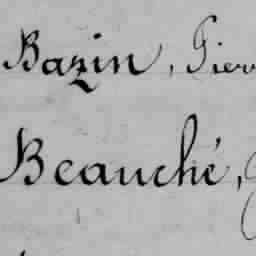 Bazin, Pier
Beauché,